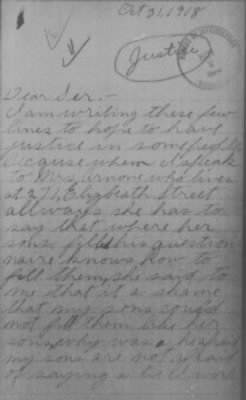 Oct 21, 1918
Justice
Dear Sir.-
I am writing these few
lines to hope to have
justice in some people
Because when I speak
to Mrs. who lives
at 271, Elizbeath Street
allways she has to
say that where her
sons fill his question
naire knows how to
fill them, she said to
me that it a shame
that my sons could
not fill them like her
sons, why was a
my sons are not afraid
of saying a word